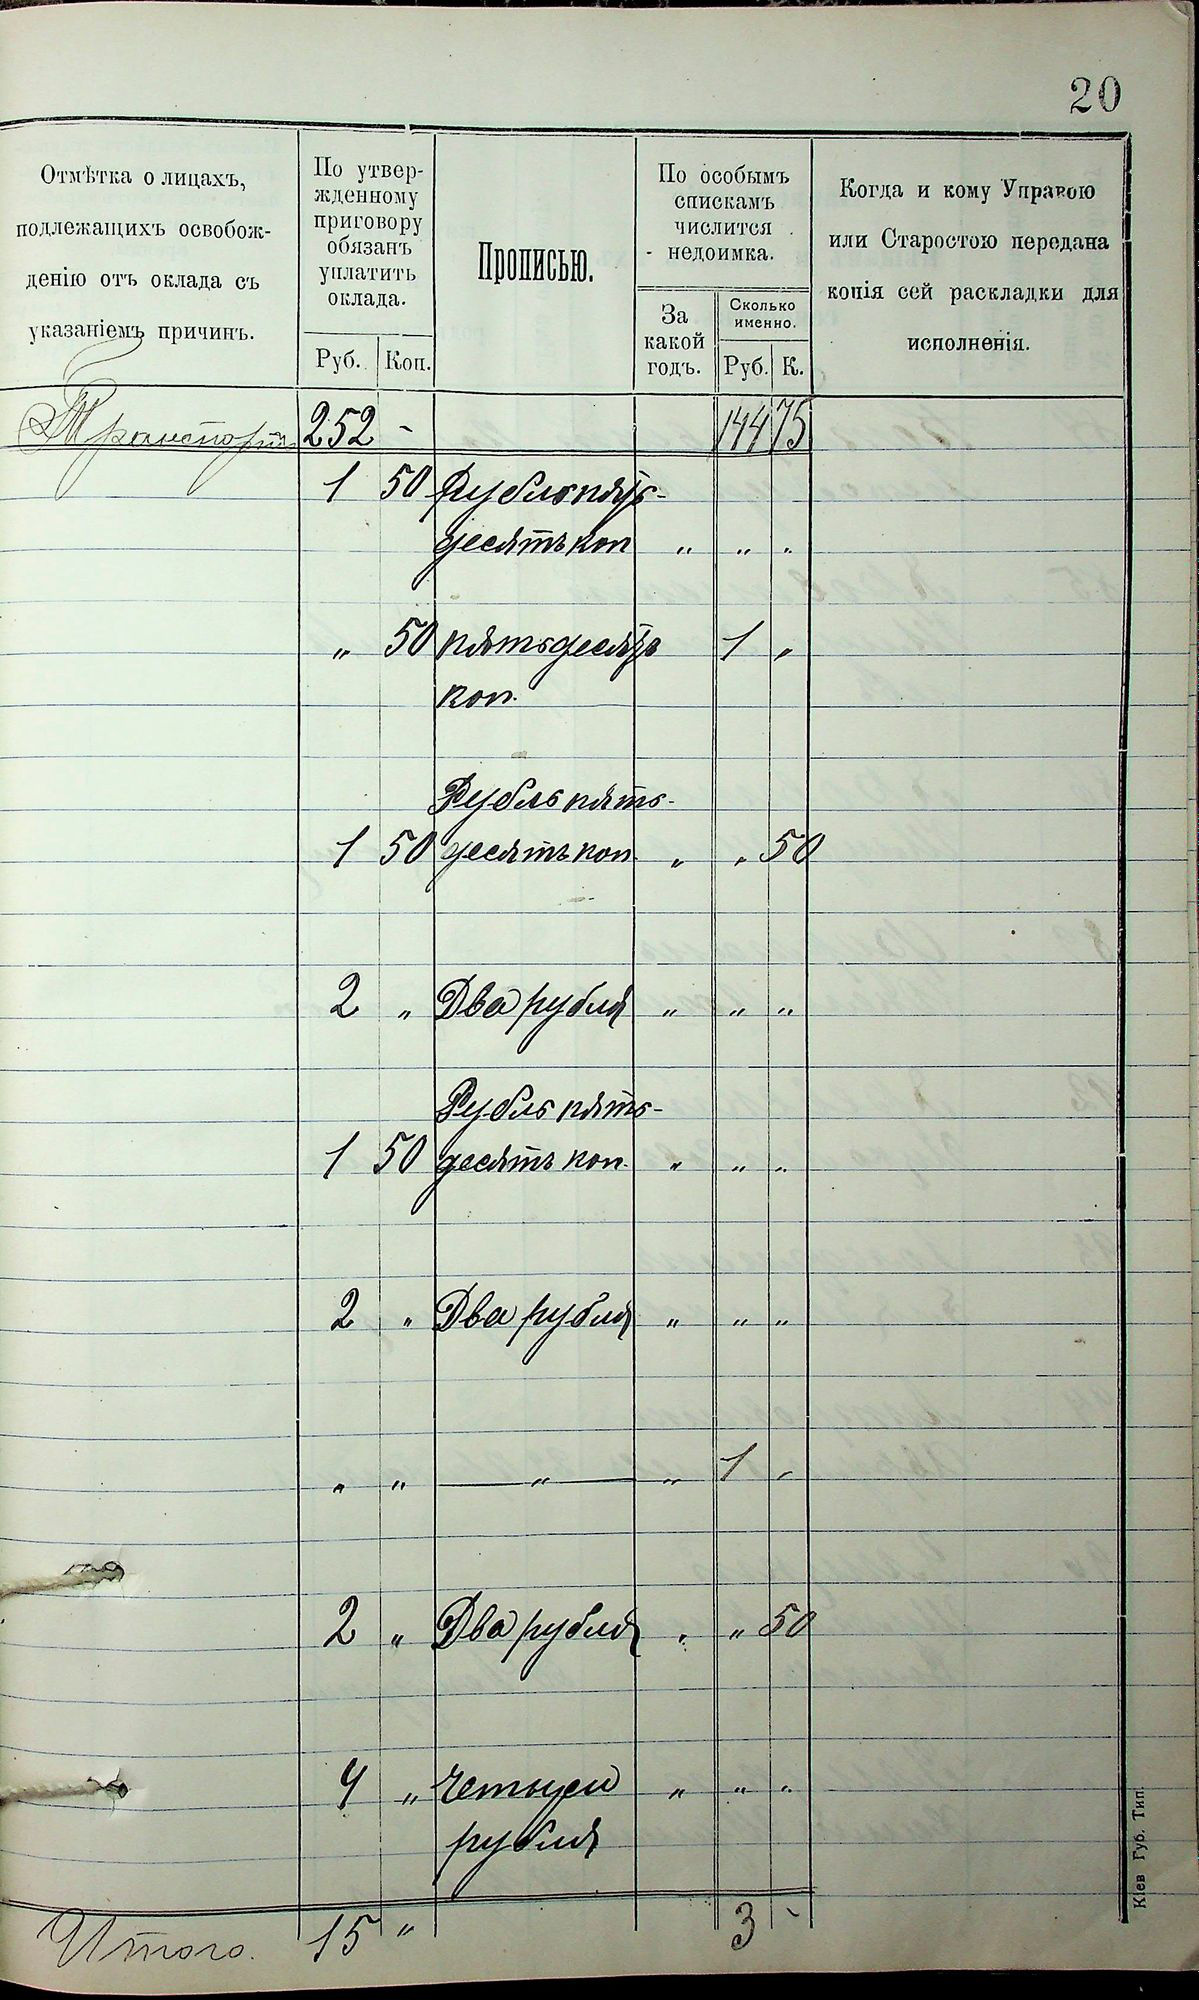 20
Отмѣтка о лицахъ,
подлежащихъ освобож-
денію отъ оклада съ
указаніемъ причинъ.
По утвер-
жденному
приговору
обязанъ
уплатить
оклада.
Руб. Коп.
Прописью.
По особымъ
спискамъ
числится
недоимка.
За
какой
годъ.
Сколько
именно.
Руб. К.
Когда и кому Управою
или Старостою передана
копія сей раскладки для
исполненія.
Транспортъ 252 - 144 75
1 50 Рубль пять-
десять коп " " "
" 50 пятьдесять 1 "
коп.
Рубль пять-
1 50 десять коп. " " 50
2 " Два рубля " " "
Рубль пять-
1 50 десять коп. " " "
2 " Два рубля " " "
" " — " — " 1 "
2 " Два рубля " " 50
4 " Четыри " " "
рубля
Итого. 15 " 3 -
Кіев Губ. Тип.